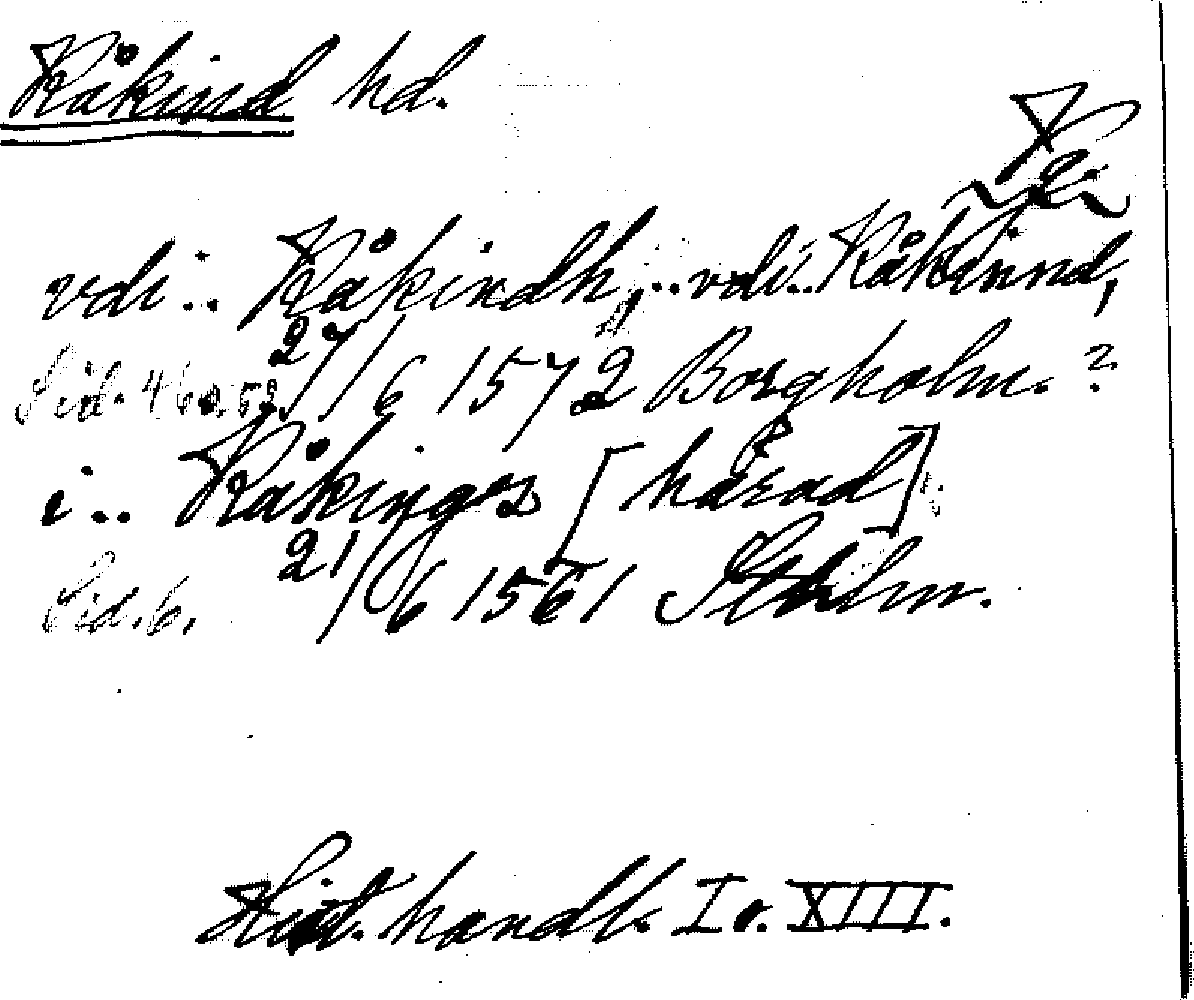 Råkind hd.
vdi.. Råkindh,..vdi..Råkinnd,
Sid. 46 o. 53. 27/6 1572 Borgholm. ?
i.. Råkinges [härad].
Sid. 6. 21/6 1561 Sthlm.
Hist. handl. I o. XIII.